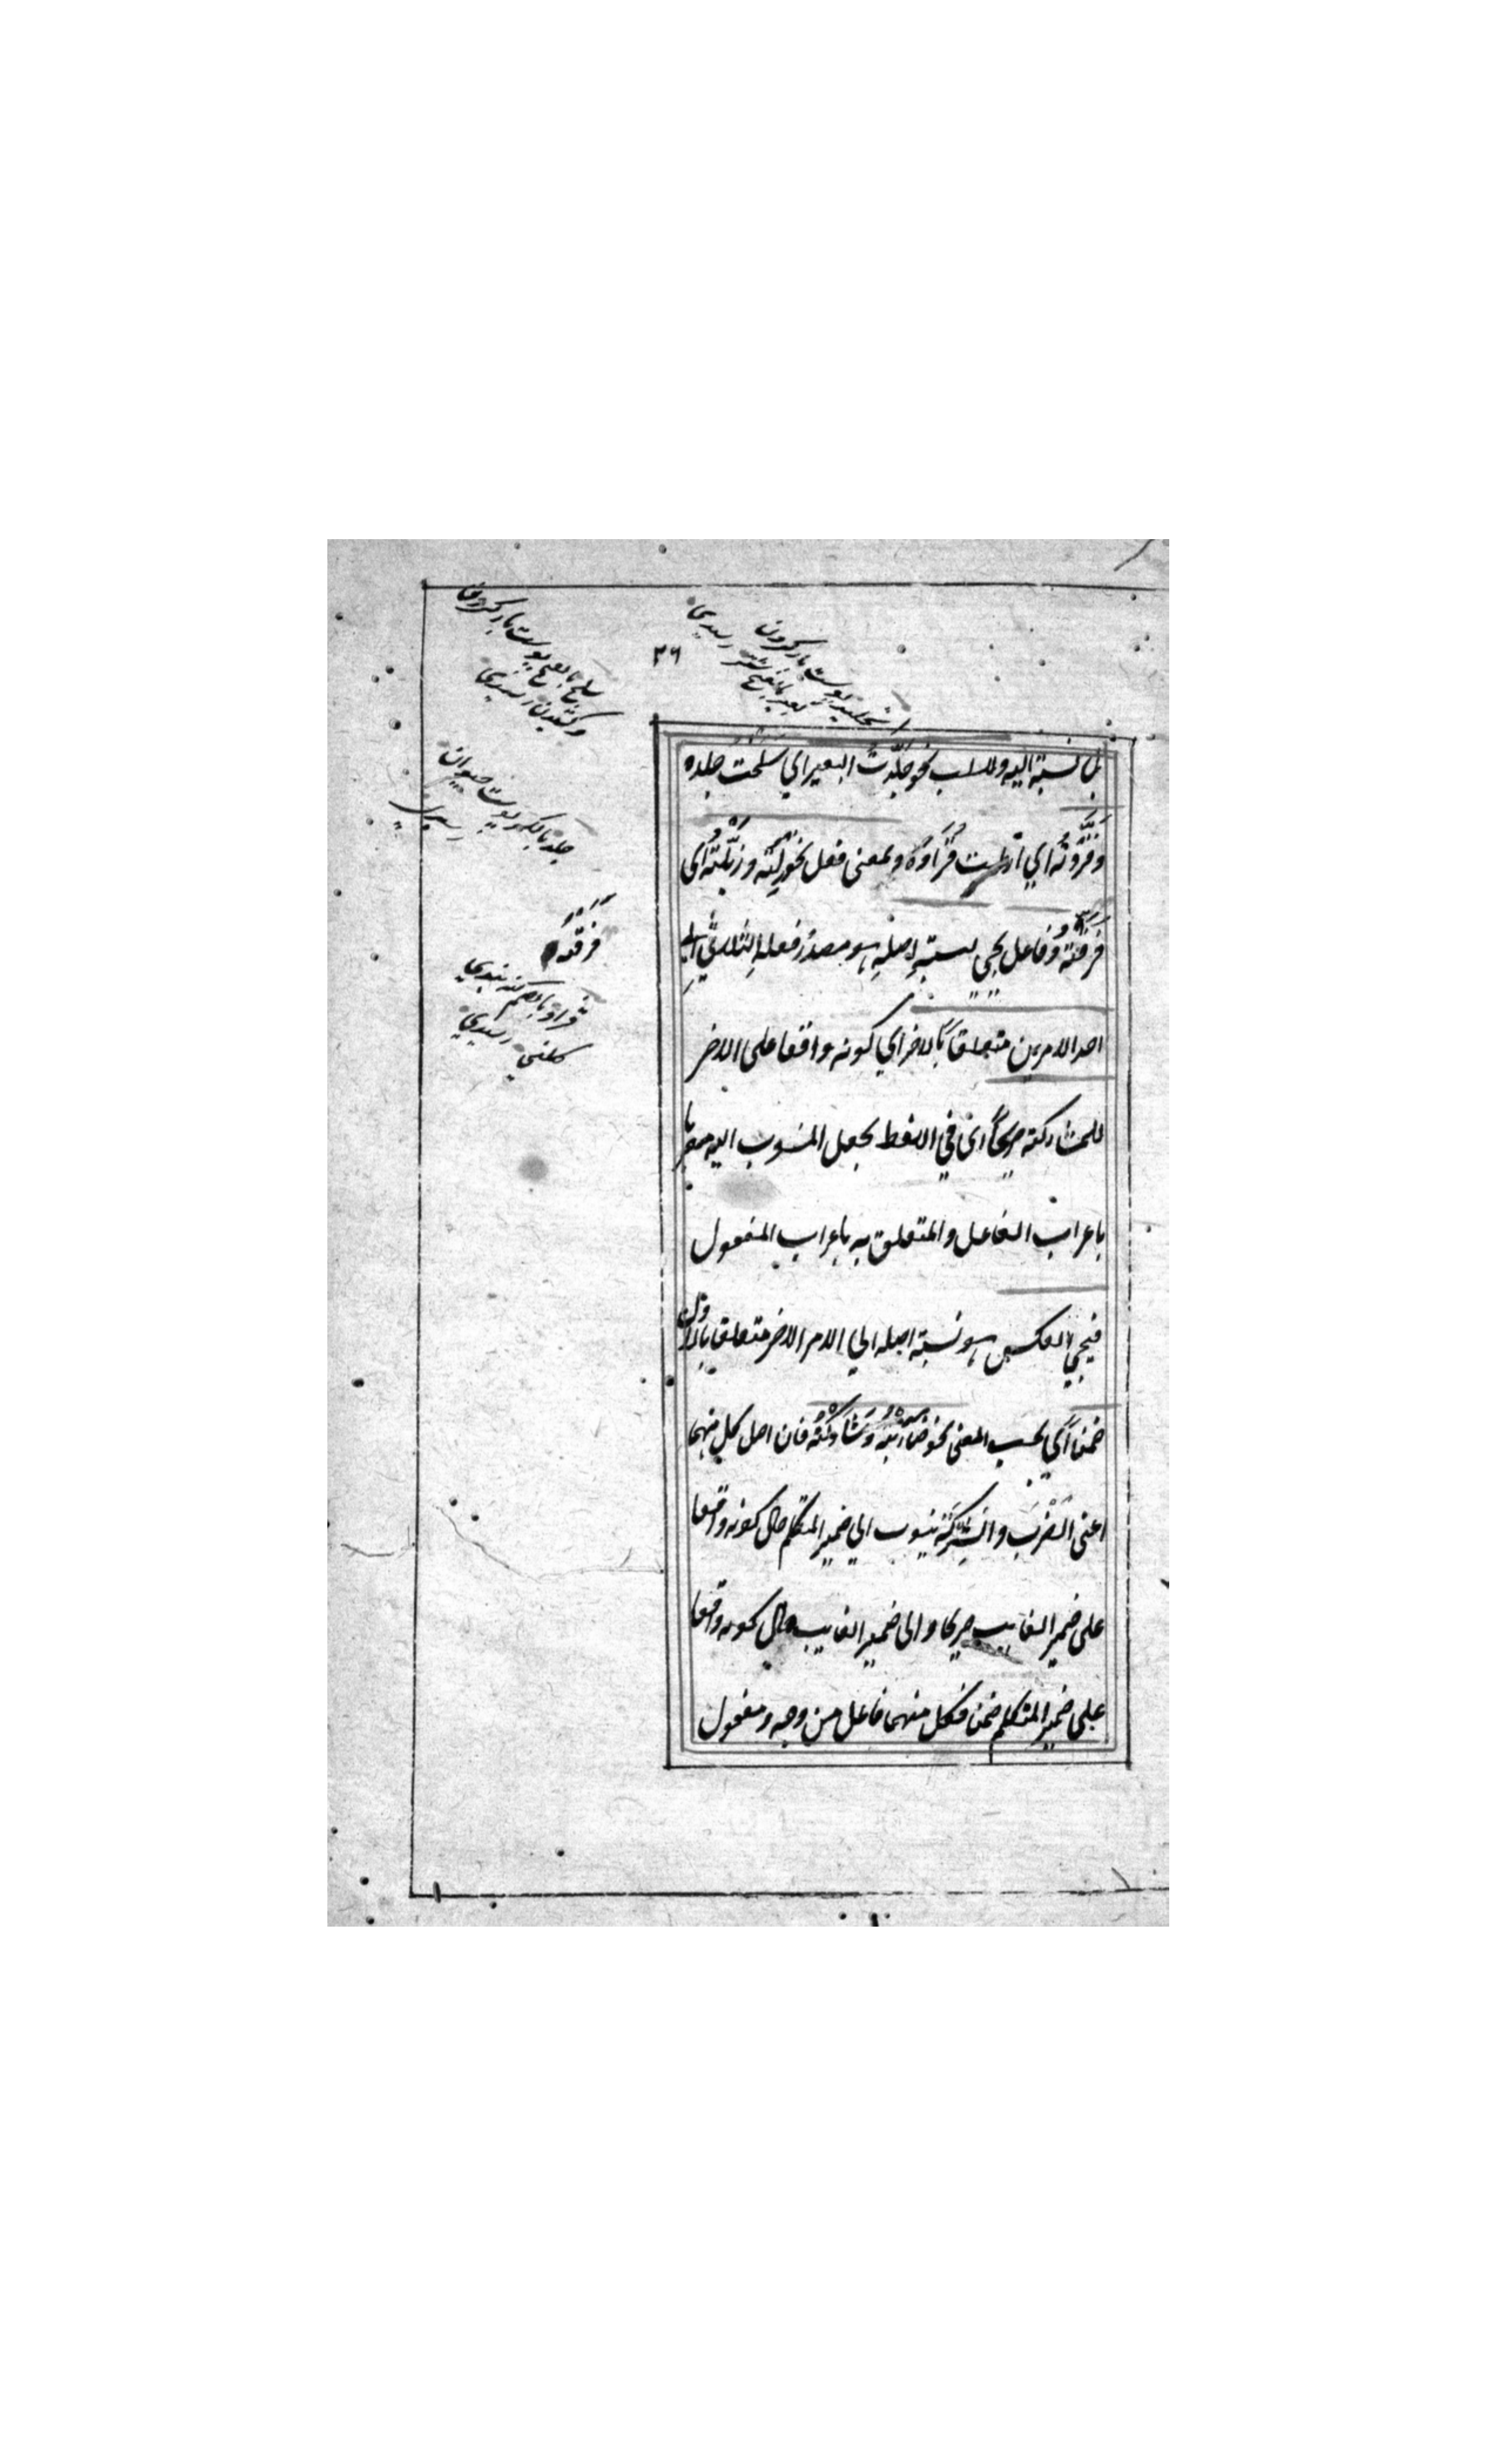 ٢٦
لما نسبته اليه وللسلب نحو جلّدت البعير اي سلخت جلده
وقرّدته اي ازلت قراده وبمعنى فعل نحو زلته وزيّلته اي
فرقته وفاعل يجي لنسبة اصله وهو مصدر فعله الثلاثي الى
احد الامرين متعلقا بالاخر اي كونه واقعا على الاخر
للمشاركة صريحا اي في اللفظ بجعل المنسوب اليه معربا
باعراب الفاعل والمتعلق به باعراب المفعول
فيجي العكس وهو نسبة اصله الي الامر الاخر متعلقا بالاول
ضمنا اي بحسب المعنى نحو ضاربته وشاركته فان اصل كل منهما
اعنى الضرب والشركة منسوب الي ضمير المتكلم حال كونه واقعا
على ضمير الغايب صريحا والى ضمير الغايب حال كونه واقعا
على ضمير المتكلم ضمنا فكل منهما فاعل من وجه ومفعول
تجليد پوست باز كردن
سلخ بالفتح پوست باز كردن
جلد بالكسر پوست حيوان
فرقته
قراد بالضم كنه